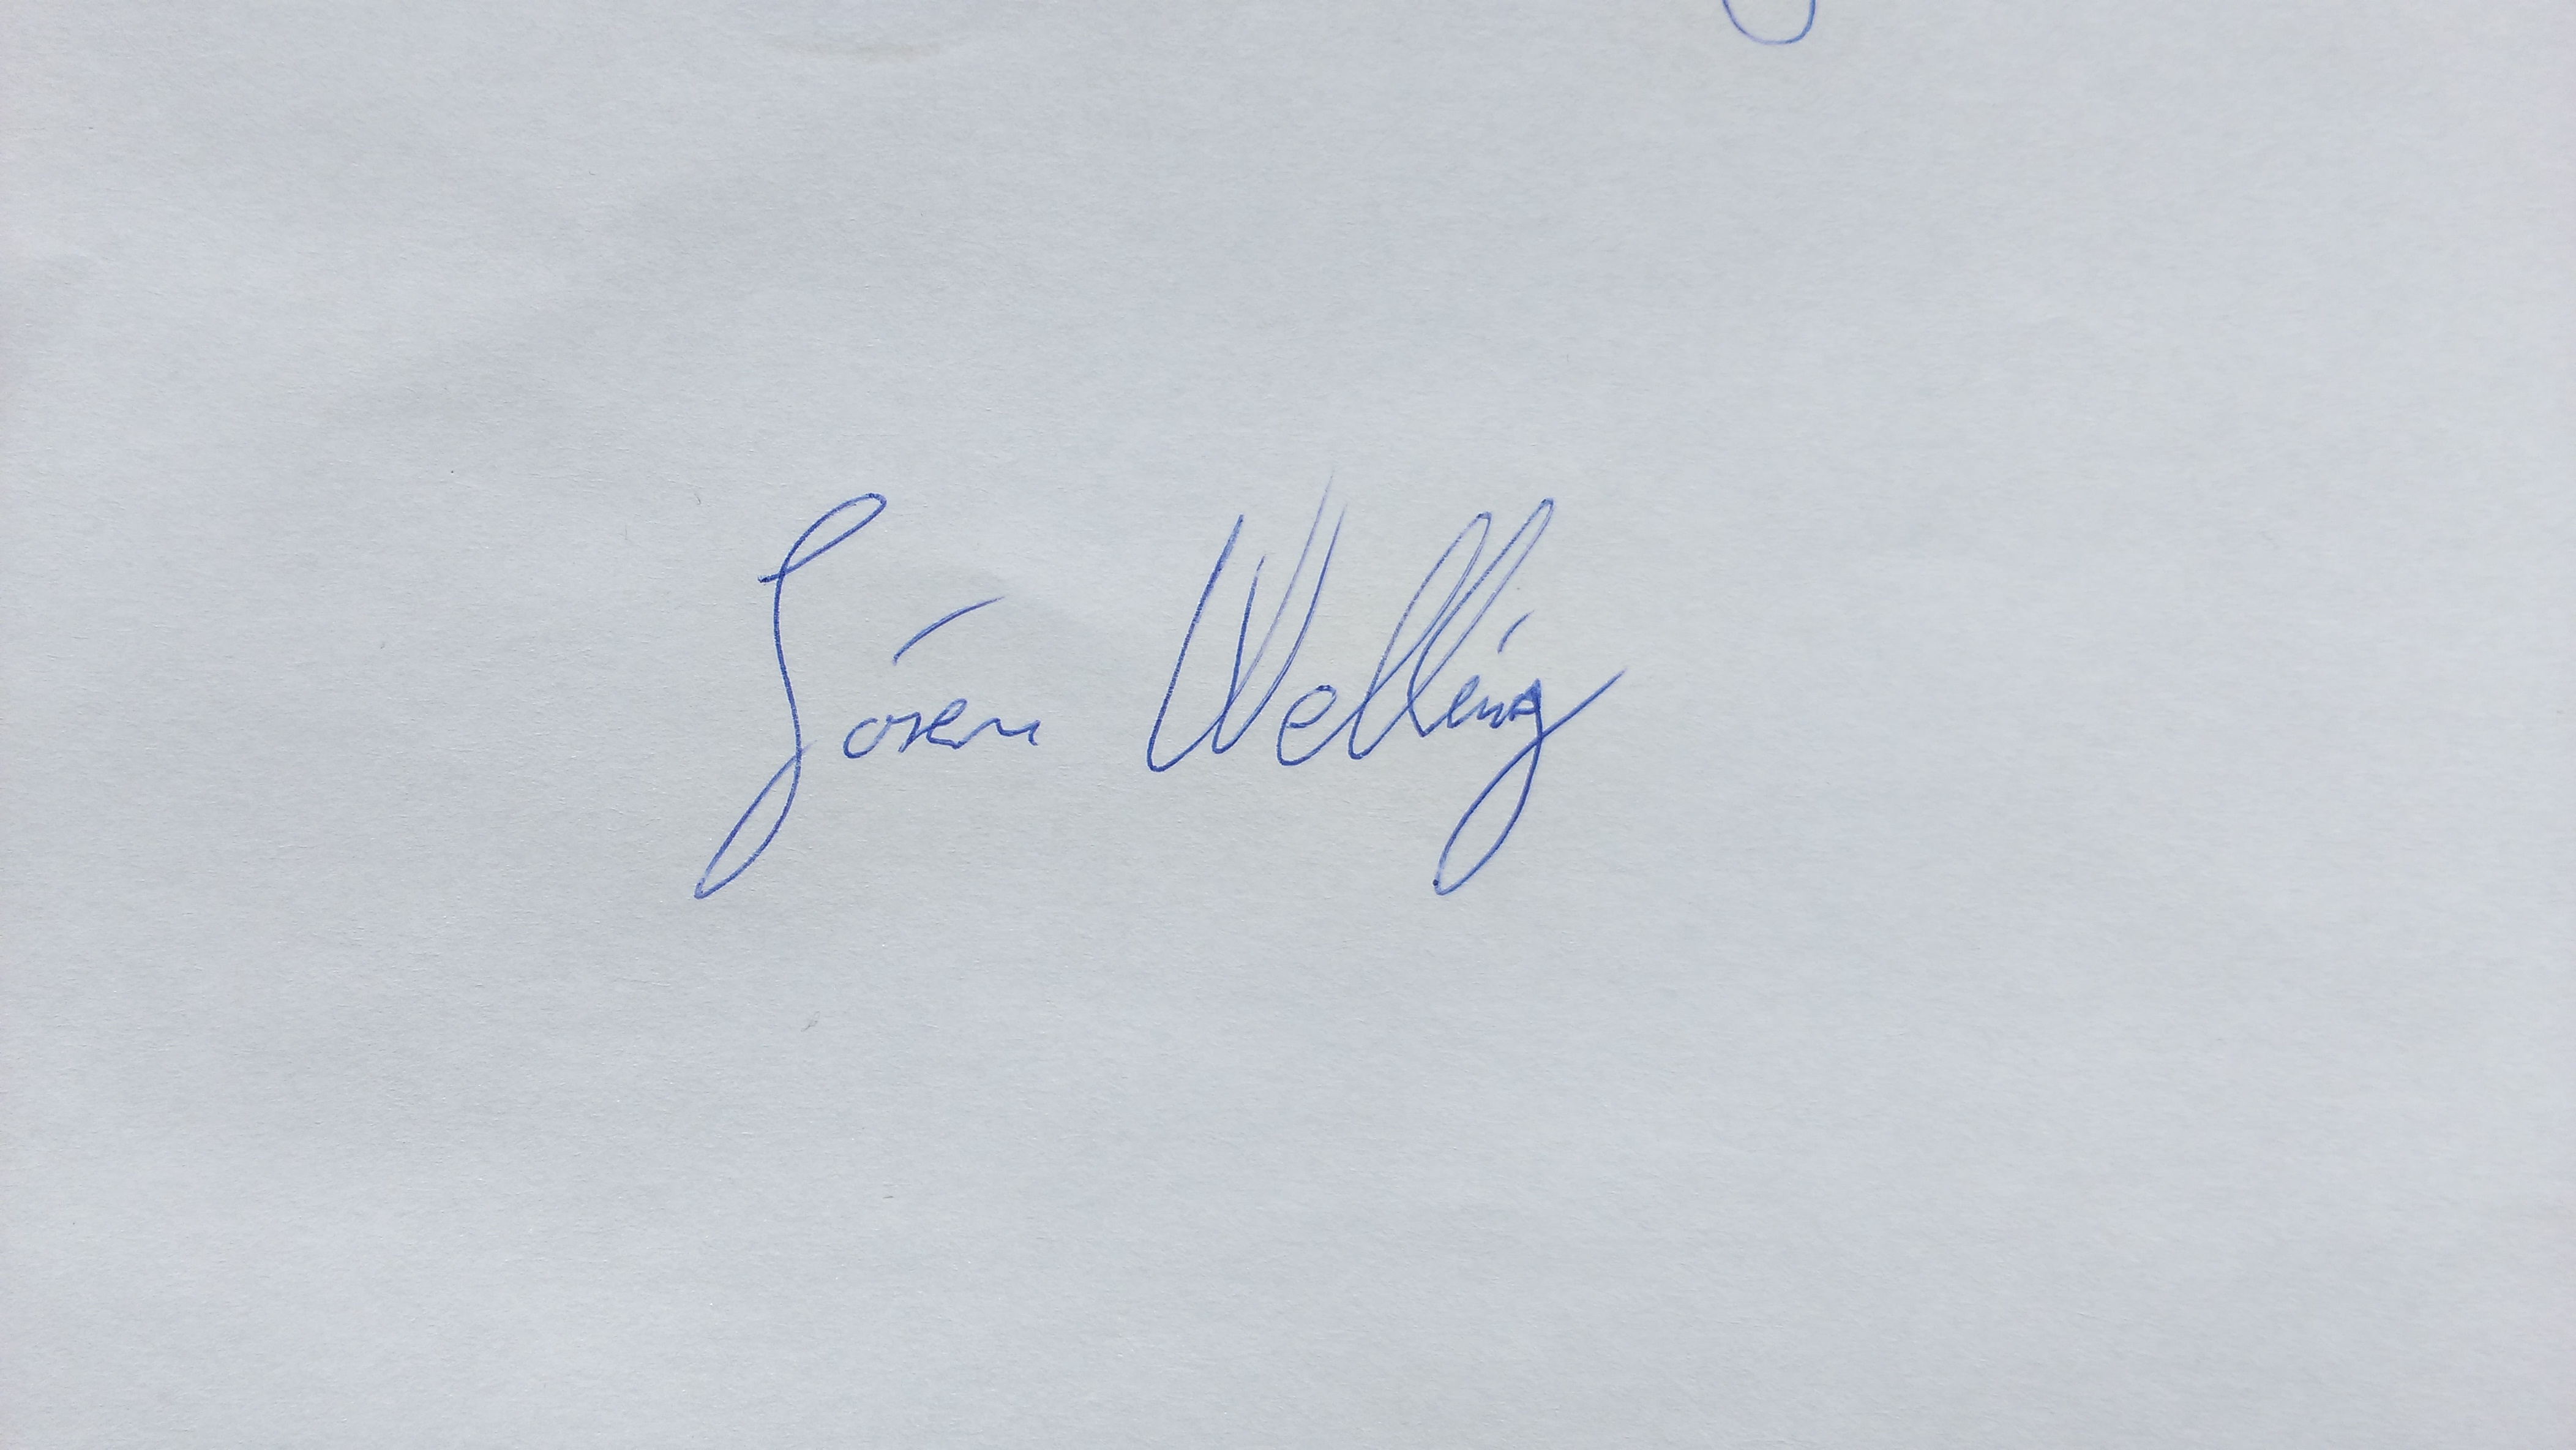 Sören Welling